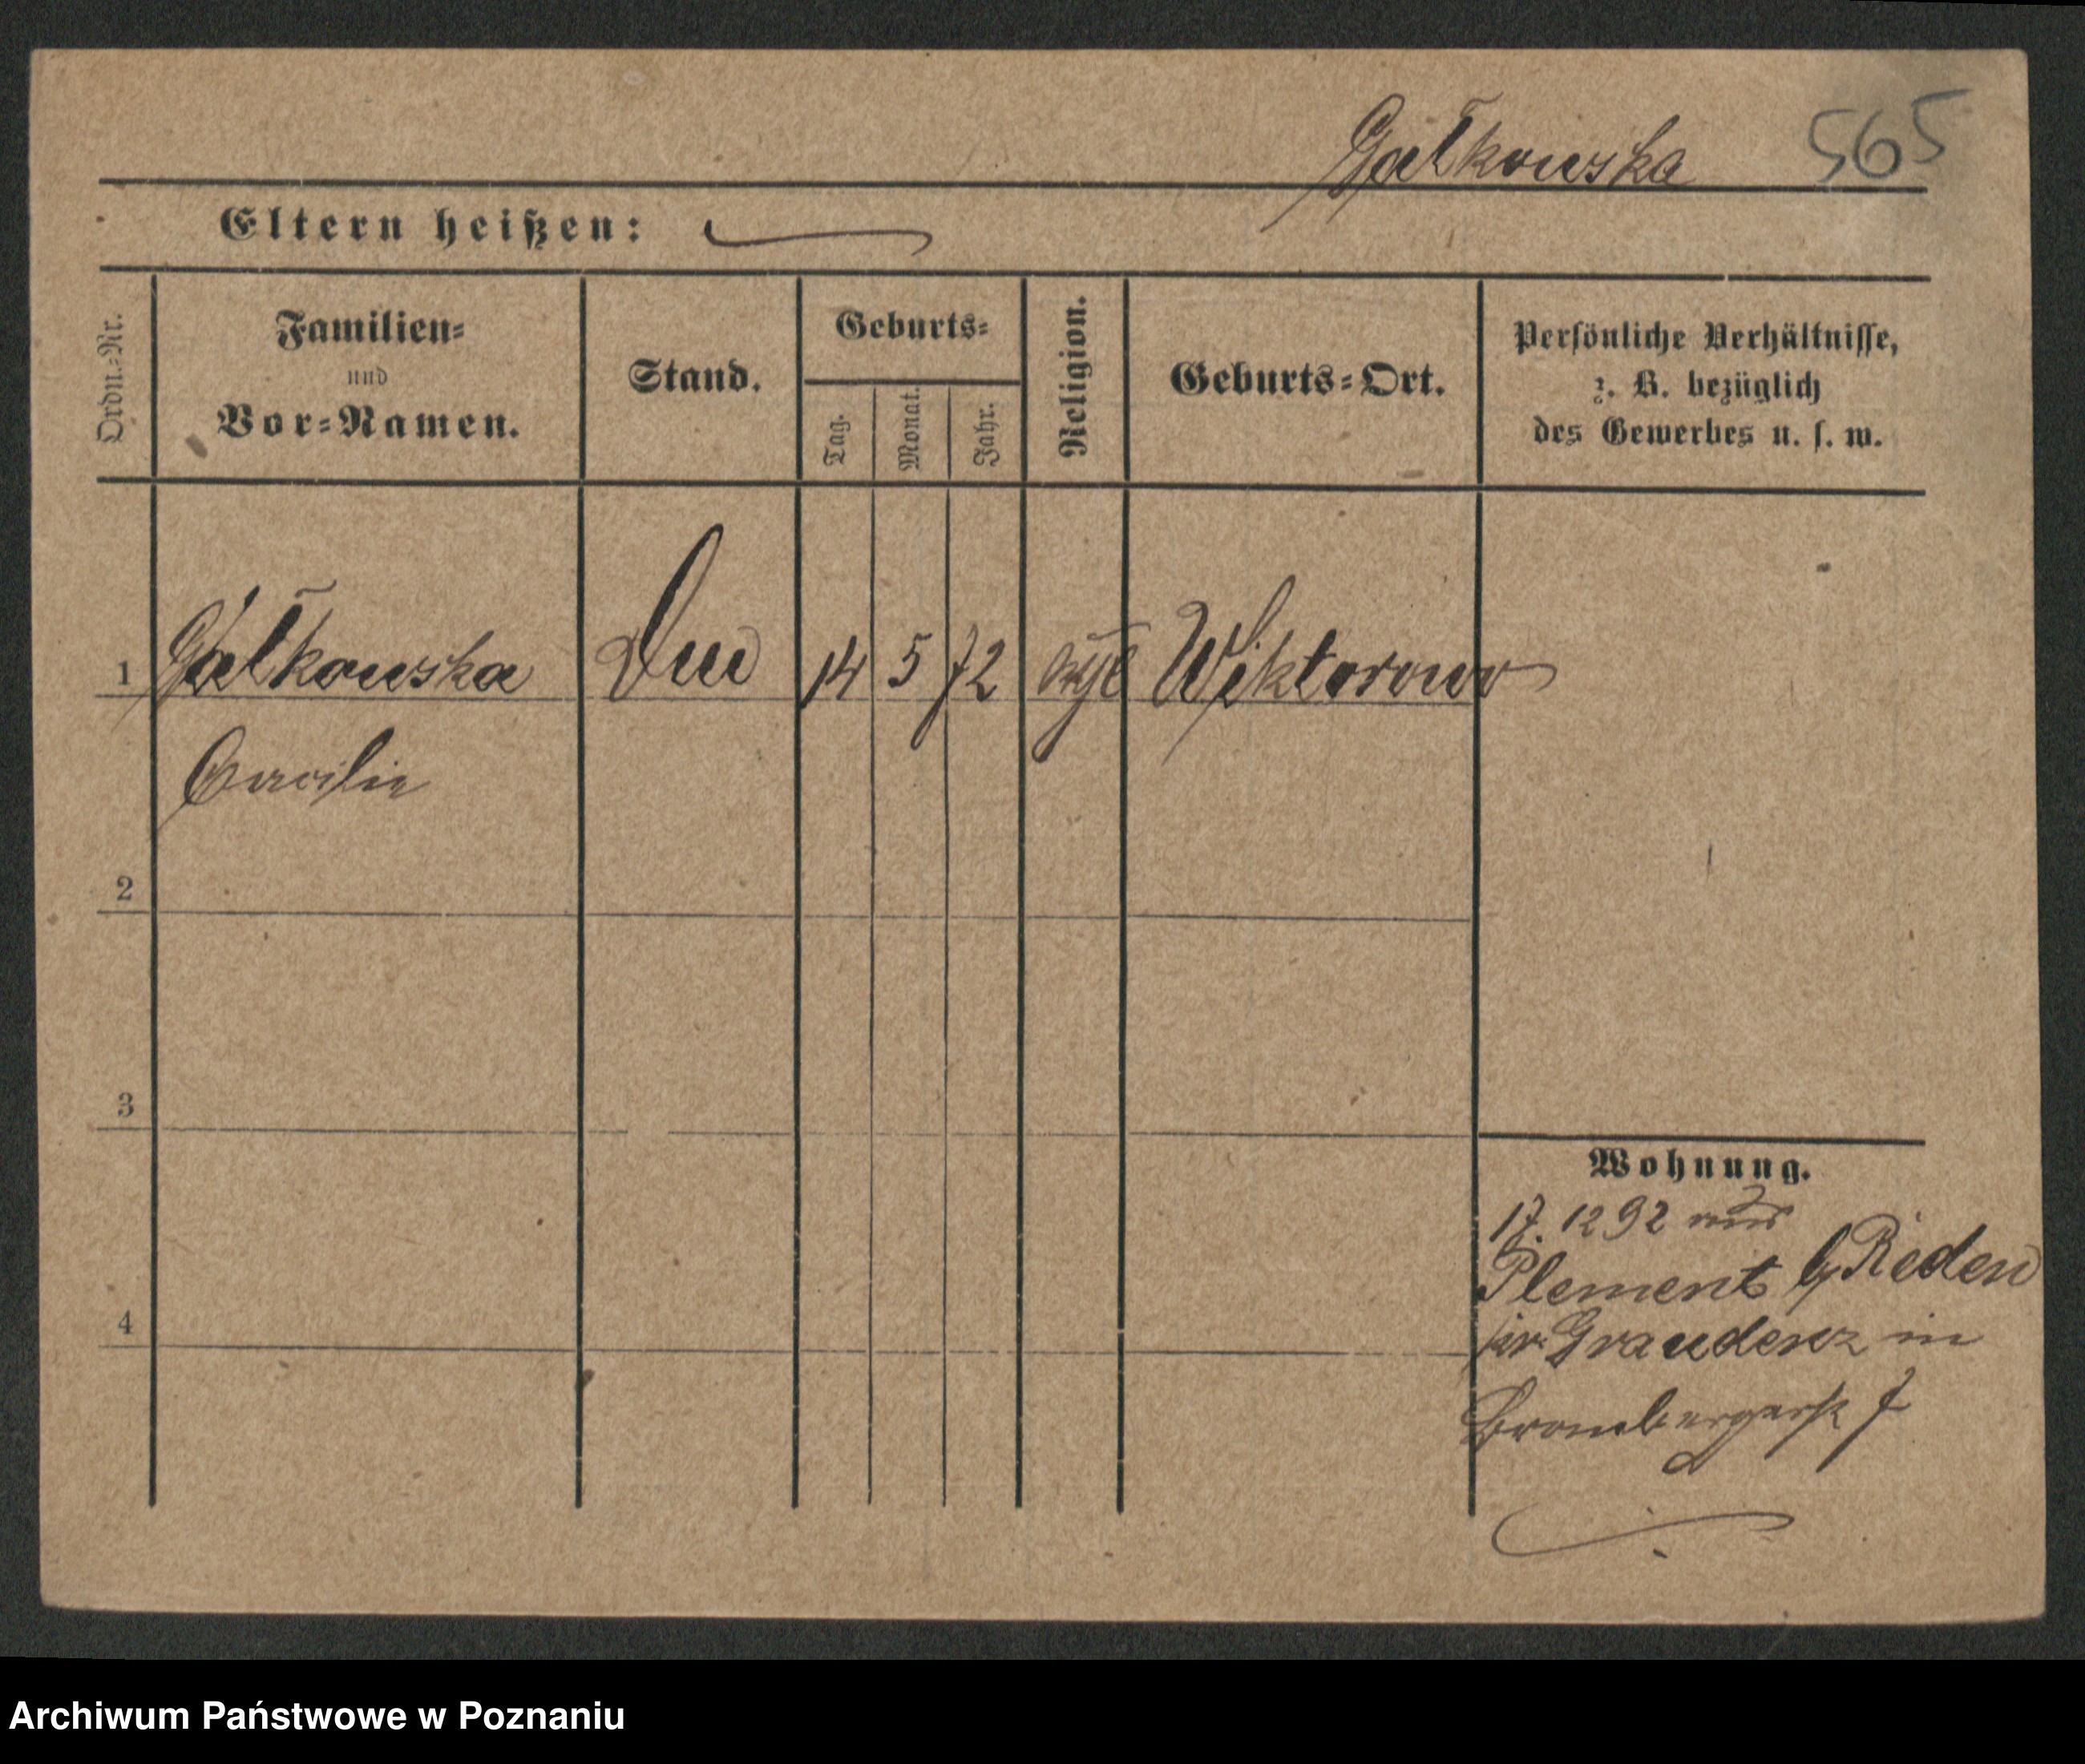 Gałkowska 565
Eltern heißen:
Ordn.-Nr.
Familien-
und
Vor-Namen.
Stand.
Geburts-
Tag.
Monat.
Jahr.
Religion.
Geburts-Ort.
Persönliche Verhältnisse,
z. B. bezüglich
des Gewerbes u. s. w.
1 Gałkowska 14 5 72 Wiktorowo
Caecilie
2
3
4
Wohnung.
17. 12 92 aus
Plement b/ Reden
kr. Graudenz in
Brombergerstr 7
Archiwum Państwowe w Poznaniu